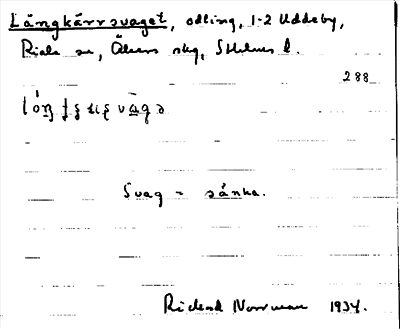 Långkärrsvaget, odling, 1-2 Uddeby,
Riala sn, Åkers skg, Sthlms l.
288
Svag = sänka.
Rickard Norrman 1934.